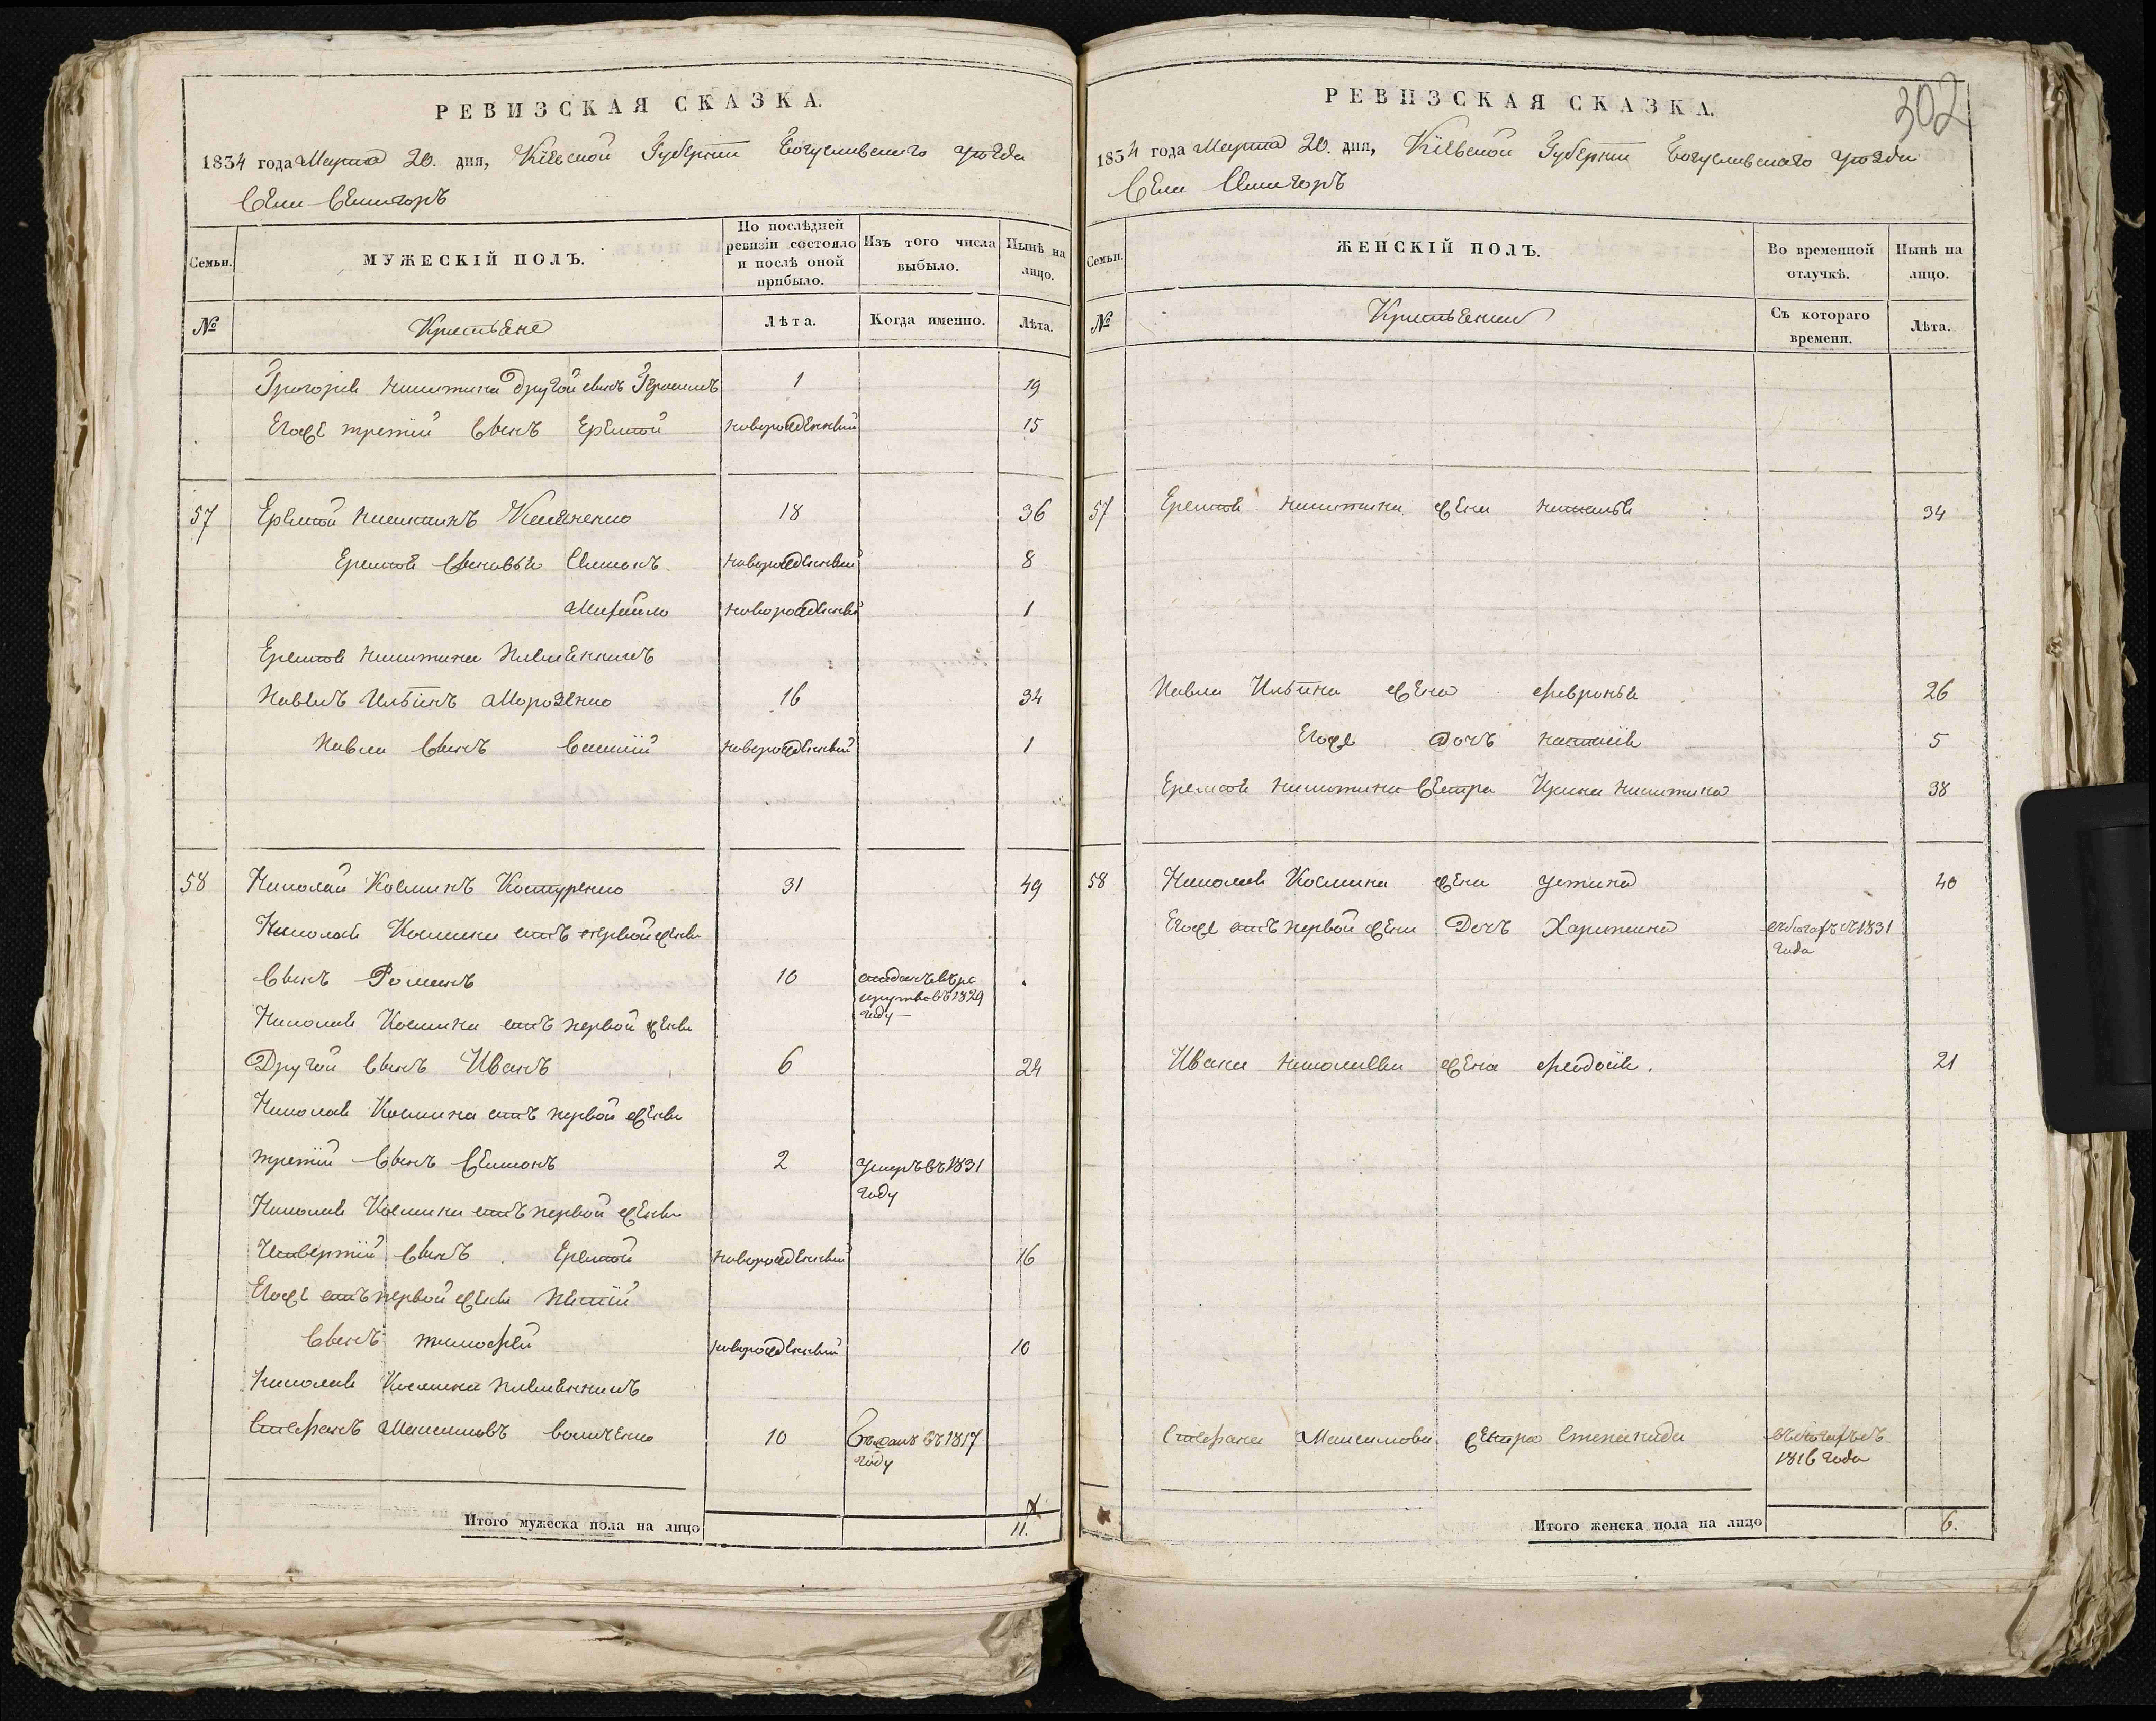 РЕВИЗСКАЯ СКАЗКА.
1834 года Марта 20. дня, Кіевской Губерніи Богуславскаго уѣзда
Села Селигоръ
Семьи.
МУЖЕСКІЙ ПОЛЪ.
По послѣдней ревизіи состояло и послѣ оной прибыло.
Изъ того числа выбыло.
Нынѣ на лицо.
№
Крестьяне
Лѣта.
Когда именно.
Лѣта.
Григорія Никитина другой сынъ Герасимъ 1 19
Егоже третій сынъ Еремѣй новорожденный 15
57 Еремѣй Никитинъ 18 36
Еремѣя сыновья Симонъ новорожденный 8
Михайло новорожденный 1
Еремѣя Никитина племянникъ
Павелъ Ильинъ Морозенко 16 34
Павла сынъ Василій новорожденный 1
58 Николай Косминъ Костуренко 31 49
Николая Космина отъ первой жены
сынъ Романъ 10 отданъ въ рекруты въ 1829 году
Николая Космина отъ первой жены
Другой сынъ Иванъ 6 24
Николая Космина отъ первой жены
третій сынъ Симонъ 2 умеръ въ 1831 году
Николая Космина отъ первой жены
Четвертій сынъ Еремѣй новорожденный 16
Егоже отъ первой жены пятій
сынъ Тимофей новорожденный 10
Николая Космина племянникъ
Стефанъ Максимовъ 10 въ 1817 году
Итого мужеска пола на лицо 11.
РЕВИЗСКАЯ СКАЗКА.
302
1834 года Марта 20. дня, Кіевской Губерніи Богуславскаго уѣзда
Села Селигоръ
Семьи.
ЖЕНСКІЙ ПОЛЪ.
Во временной отлучкѣ.
Нынѣ на лицо.
№
Крестьянки
Съ котораго времени.
Лѣта.
57 Еремѣя Никитина жена Наталья 34
Павла Ильина жена Февронья 26
Егоже дочь Настасія 5
Еремѣя Никитина сестра Ирина Никитина 38
58 Николая Космина жена Устина 40
Егоже отъ первой жены дочь Харитина въ бегахъ съ 1831 года
Ивана Николаева жена Феодосія. 21
Стефана Максимова сестра Степанида въ бегахъ съ 1816 года
Итого женска пола на лицо 6.